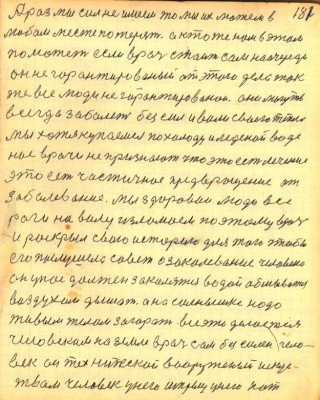 181
А раз мы сил не имеем то мы их можем в
любом месте потерят. а кто же нам в этом
поможет если врач стоит сам на очереди
он не гарантированый от этого дела так
же все люди не гарантированои. они могут
всегда заболет без сил и воли своего тела
мы хотя купаемся по холоду и ледской воде
нас врачи не признают что это ест лечение
это ест частичное предвращение от
заболевание. мы здоровои люди все
роги на балу изломаем поэтому врач
и роскрыл свою историю для того чтобы
его прислушели совет о закалевание человека
он у нас должен закалятся водой обтиватся
воздухом дышат. а на солнышке надо
живым телом загорат все это делается
человеком на земли врач сам бы силен чело-
век он технитеской вооруженый искус-
твам человек у него нет